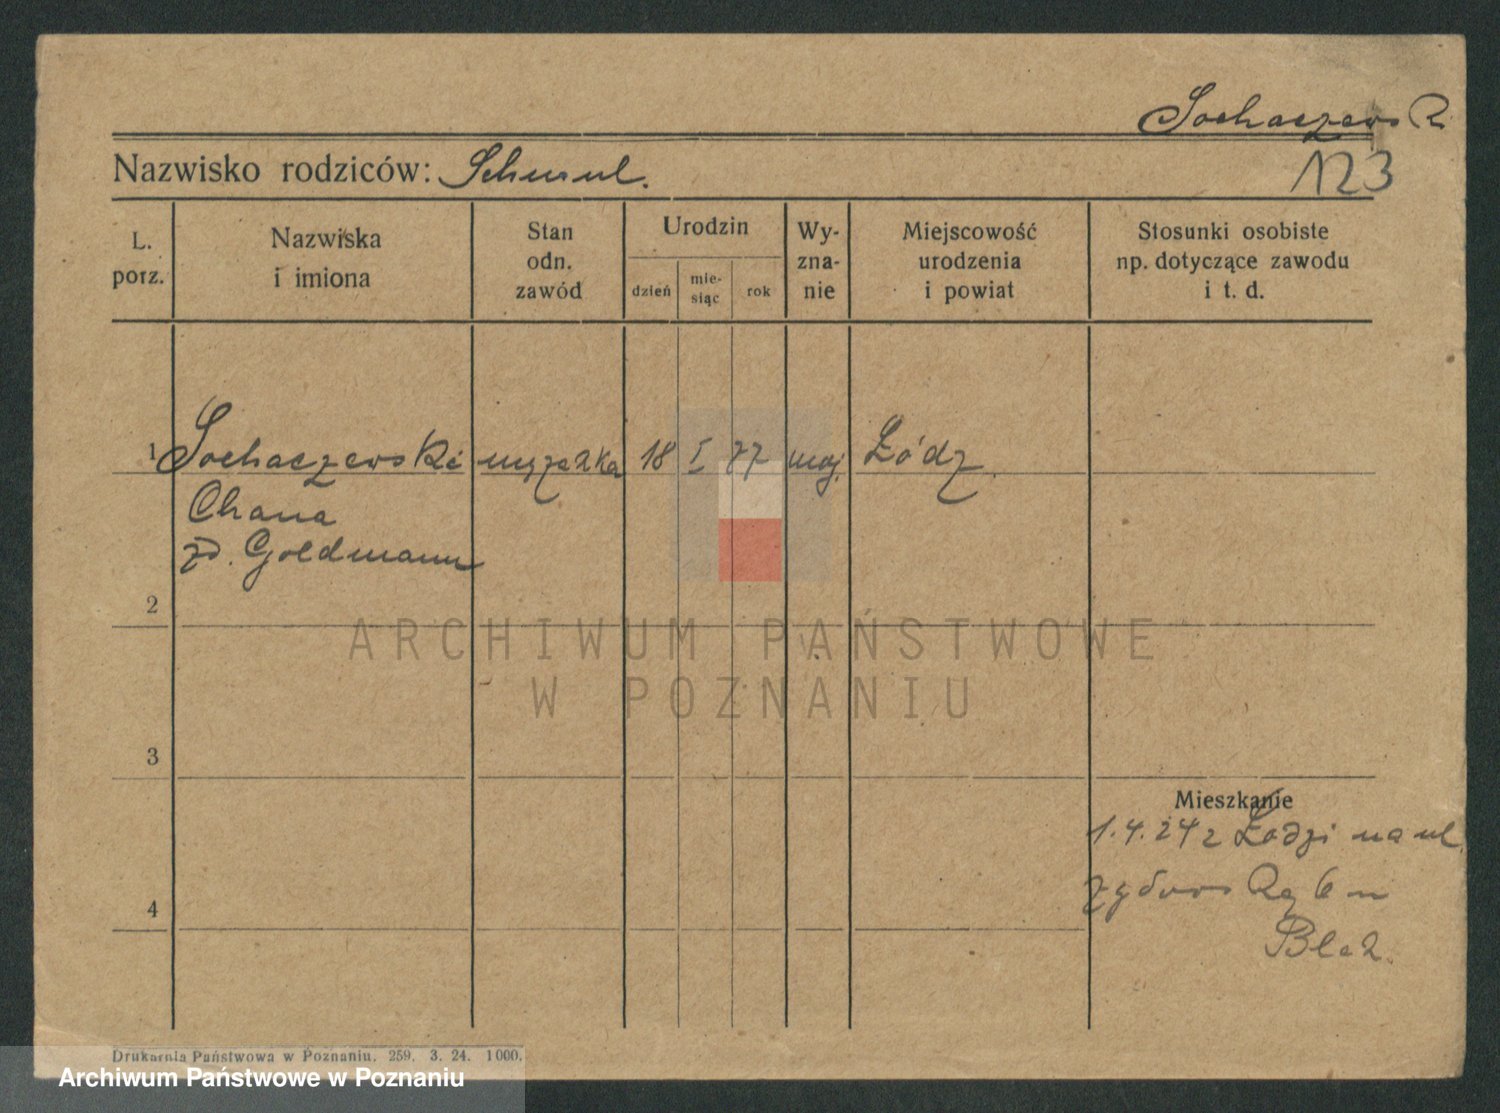 Sochaczewsk
123
Nazwisko rodziców: Schmul.
L. porz.
Nazwiska i imiona
Stan odn. zawód
Urodzin
dzień
mie-siąc
rok
Wy-zna-nie
Miejscowość urodzenia i powiat
Stosunki osobiste np. dotyczące zawodu i t. d.
1 Sochaczewski mężatka 18 I 77 moj. Łódz.
Chana
zd. Goldmann
2
ARCHIWUM PAŃSTWOWE
W POZNANIU
3
Mieszkanie
1.4.24 z Łodzi na ul.
Żydowską 6 u
4
Drukarnia Państwowa w Poznaniu. 259. 3. 24. 1000.
Archiwum Państwowe w Poznaniu